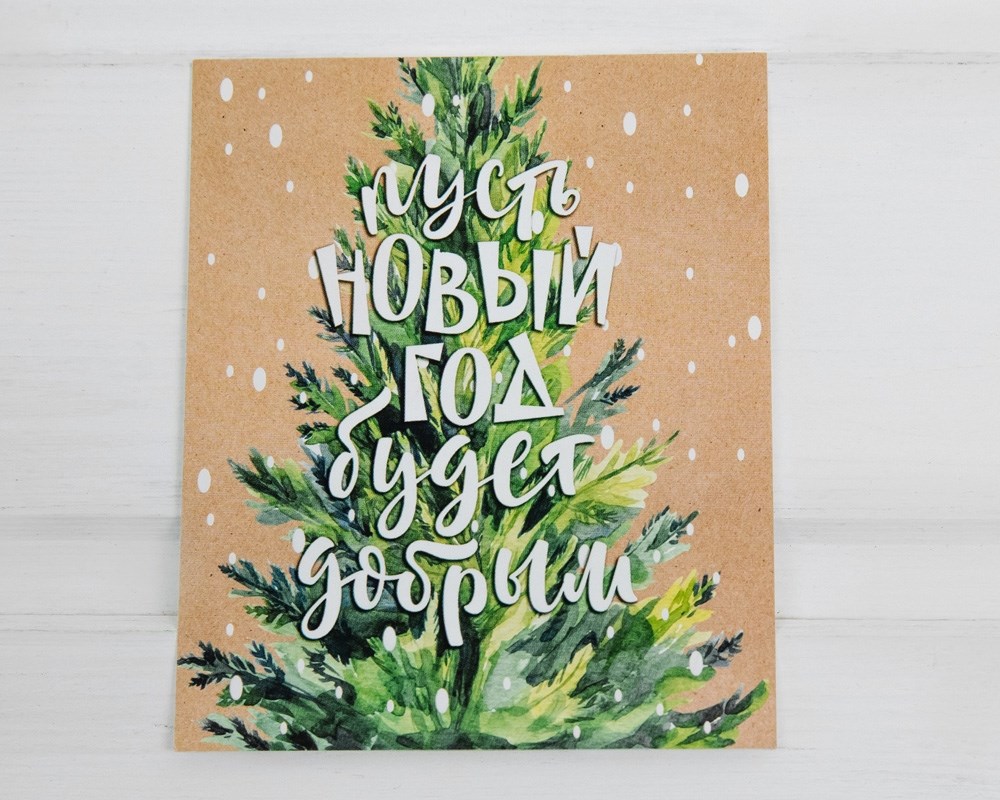 пусть
НОВЫЙ
ГОД
будет
добрым